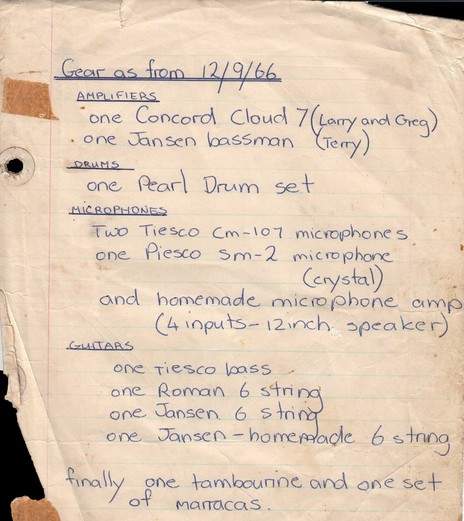 Gear as from 12/9/66
AMPLIFIERS
one Concord Cloud 7 (Larry and Greg)
one Jansen bassman (Terry)
DRUMS
one Pearl Drum set
MICROPHONES
Two Tiesco Cm-107 microphones
one Piesco sm-2 microphone
(crystal)
and homemade microphone amp
(4 inputs-12inch speaker)
GUITARS
one Tiesco bass
one Roman 6 string
one Jansen 6 string
one Jansen-homemade 6 string
finally one tambourine and one set
of marracas.